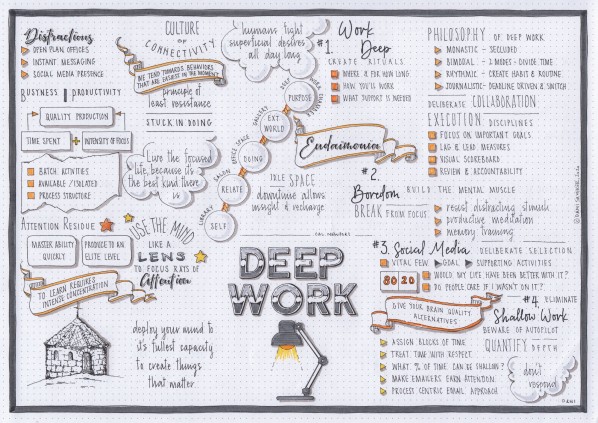 Distractions
OPEN PLAN OFFICES
INSTANT MESSAGING
SOCIAL MEDIA PRESENCE
BUSINESS ‖ PRODUCTIVITY
QUALITY PRODUCTION
TIME SPENT + INTENSITY OF FOCUS
BATCH ACTIVITIES
AVAILABLE / ISOLATED
PROCESS STRUCTURE
ATTENTION RESIDUE
MASTER ABILITY
QUICKLY
PRODUCE TO AN
ELITE LEVEL
TO LEARN REQUIRES
INTENSE CONCENTRATION
CULTURE
OF
CONNECTIVITY
WE TEND TOWARDS BEHAVIORS
THAT ARE EASIEST IN THE MOMENT
principle of
least resistance
STUCK IN DOING
Live the focused
life, because it's
the best kind there
is
USE THE MIND
LIKE A
LENS
TO FOCUS RAYS OF
Attention
deploy your mind to
it's fullest capacity
to create things
that matter
humans fight
superficial desires
all day long
PURPOSE
EXT
WORLD
GALLERY
DOING
OFFICE SPACE
RELATE
SALON
SELF
LIBRARY
Eudaimonia
IDLE SPACE
downtime allows
insight & recharge
CAL NEWPORT
DEEP
WORK
#1. Work
Deep
CREATE RITUALS
WHERE & FOR HOW LONG
HOW YOU'LL WORK
WHAT SUPPORT IS NEEDED
#2.
Boredom BUILD THE MENTAL MUSCLE
BREAK FROM FOCUS
resist distracting stimuli
productive meditation
memory training
PHILOSOPHY OF DEEP WORK
MONASTIC - SECLUDED
BIMODAL - 2 MODES : DIVIDE TIME
RHYTHMIC - CREATE HABIT & ROUTINE
JOURNALISTIC - DEADLINE DRIVEN & SWITCH
DELIBERATE COLLABORATION
EXECUTION DISCIPLINES
FOCUS ON IMPORTANT GOALS
LAG & LEAD MEASURES
VISUAL SCOREBOARD
REVIEW & ACCOUNTABILITY
#3. Social Media DELIBERATE SELECTION
VITAL FEW GOAL SUPPORTING ACTIVITIES
80 20
WOULD MY LIFE HAVE BEEN BETTER WITH IT?
DO PEOPLE CARE IF I WASN'T ON IT?
GIVE YOUR BRAIN QUALITY
ALTERNATIVES
#4. ELIMINATE
Shallow Work
BEWARE OF AUTOPILOT
QUANTIFY DEPTH
ASSIGN BLOCKS OF TIME
TREAT TIME WITH RESPECT
WHAT % OF TIME CAN BE SHALLOW?
MAKE EMAILERS EARN ATTENTION
PROCESS CENTRIC EMAIL APPROACH
don't
respond